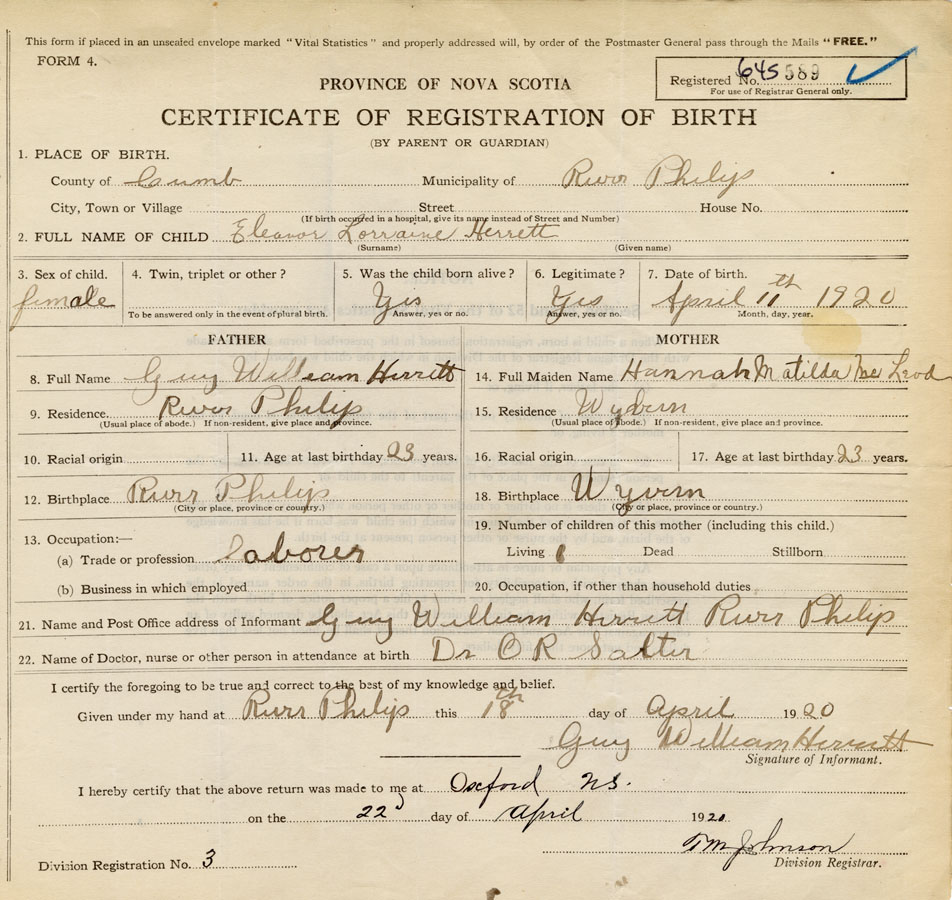 This form if placed in an unsealed envelope marked "Vital Statistics" and properly addressed will, by order of the Postmaster General pass through the Mails "FREE."
FORM 4.
Registered No. 645 589
For use of Registrar General only.
PROVINCE OF NOVA SCOTIA
CERTIFICATE OF REGISTRATION OF BIRTH
(BY PARENT OR GUARDIAN)
1. PLACE OF BIRTH.
County of Cumb Municipality of River Philip
City, Town or Village Street House No.
(If birth occurred in a hospital, give its name instead of Street and Number)
2. FULL NAME OF CHILD Eleanor Lorraine Herrett
(Surname) (Given name)
3. Sex of child. 4. Twin, triplet or other? 5. Was the child born alive? 6. Legitimate? 7. Date of birth.
female Yes Yes April 11th 1920
To be answered only in the event of plural birth. Answer, yes or no. Answer, yes or no. Month, day, year.
FATHER MOTHER
8. Full Name Guy William Herrett 14. Full Maiden Name Hannah Matilda Mc Leod
9. Residence. River Philip 15. Residence Wyvern
(Usual place of abode.) If non-resident, give place and province. (Usual place of abode.) If non-resident, give place and province.
10. Racial origin 11. Age at last birthday 23 years. 16. Racial origin 17. Age at last birthday 23 years.
12. Birthplace River Philip 18. Birthplace Wyvern
(City or place, province or country.) (City or place, province or country.)
13. Occupation:— 19. Number of children of this mother (including this child.)
(a) Trade or profession Laborer Living 1 Dead Stillborn
(b) Business in which employed 20. Occupation, if other than household duties
21. Name and Post Office address of Informant Guy William Herrett River Philip
22. Name of Doctor, nurse or other person in attendance at birth Dr O R Salter
I certify the foregoing to be true and correct to the best of my knowledge and belief.
Given under my hand at River Philip this 18th day of April 1920
Guy William Herrett
Signature of Informant.
I hereby certify that the above return was made to me at Oxford NS.
on the 22 day of April 1920
T M Johnson
Division Registration No. 3 Division Registrar.